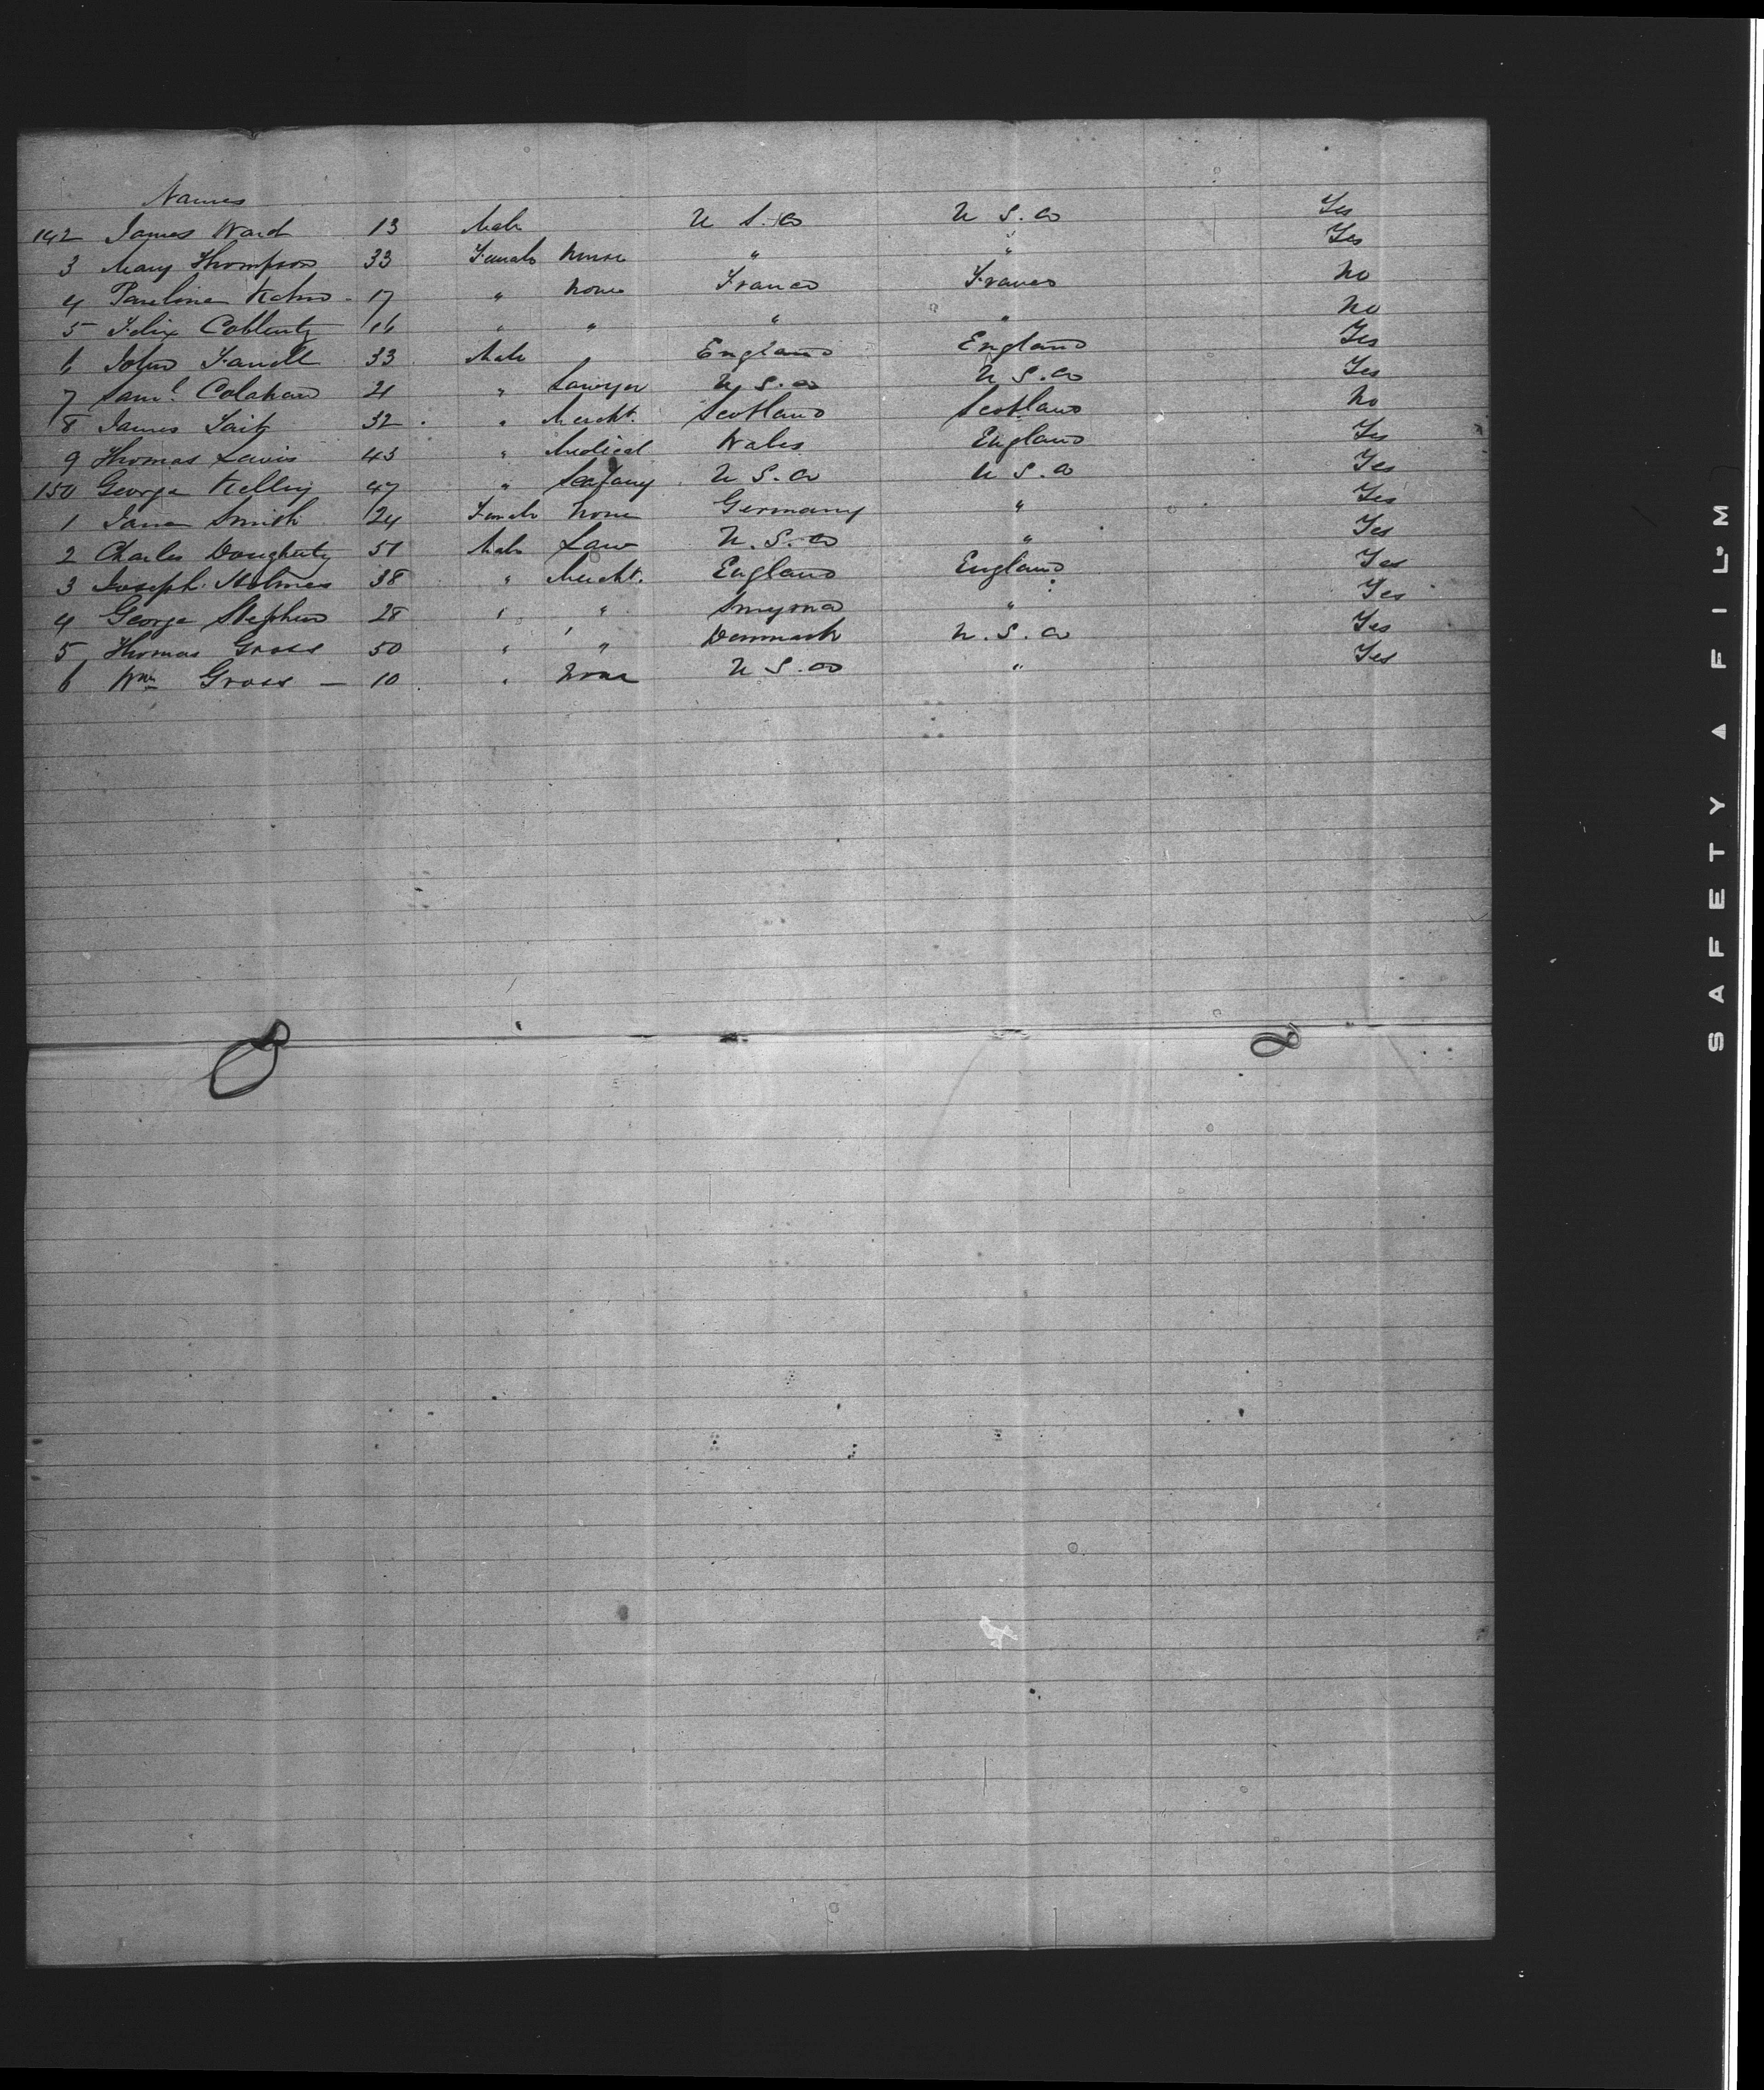 Names
142 James Ward 13 Male U S. A Yes U S. A
3 Mary Thompson 33 Female Nurse " " Yes
4 Pauline Kahn - 17 " None France France No
5 Felix Coblentz 16 " " " " No
6 John Farrell 33 Male England England Yes
7 Saml. Colahan 21 " Lawyer U. S. A U S. A Yes
8 James Tait 32 " Mercht. Scotland Scotland No
9 Thomas Lewis 43 " Medical Wales England Yes
150 George Kelley 47 " U S. A U S. A Yes
1 Jane Smith 24 Female None Germany " Yes
2 Charles Dougherty 51 Male Law U. S. A " Yes
3 Joseph Holmes 38 " Mercht. England England Yes
4 George Stephen 28 " " Smyrna " Yes
5 Thomas Gross 50 " " Denmark U. S. A Yes
6 Wm Gross - 10 " None U S. A " Yes
SAFETY ▲ FILM